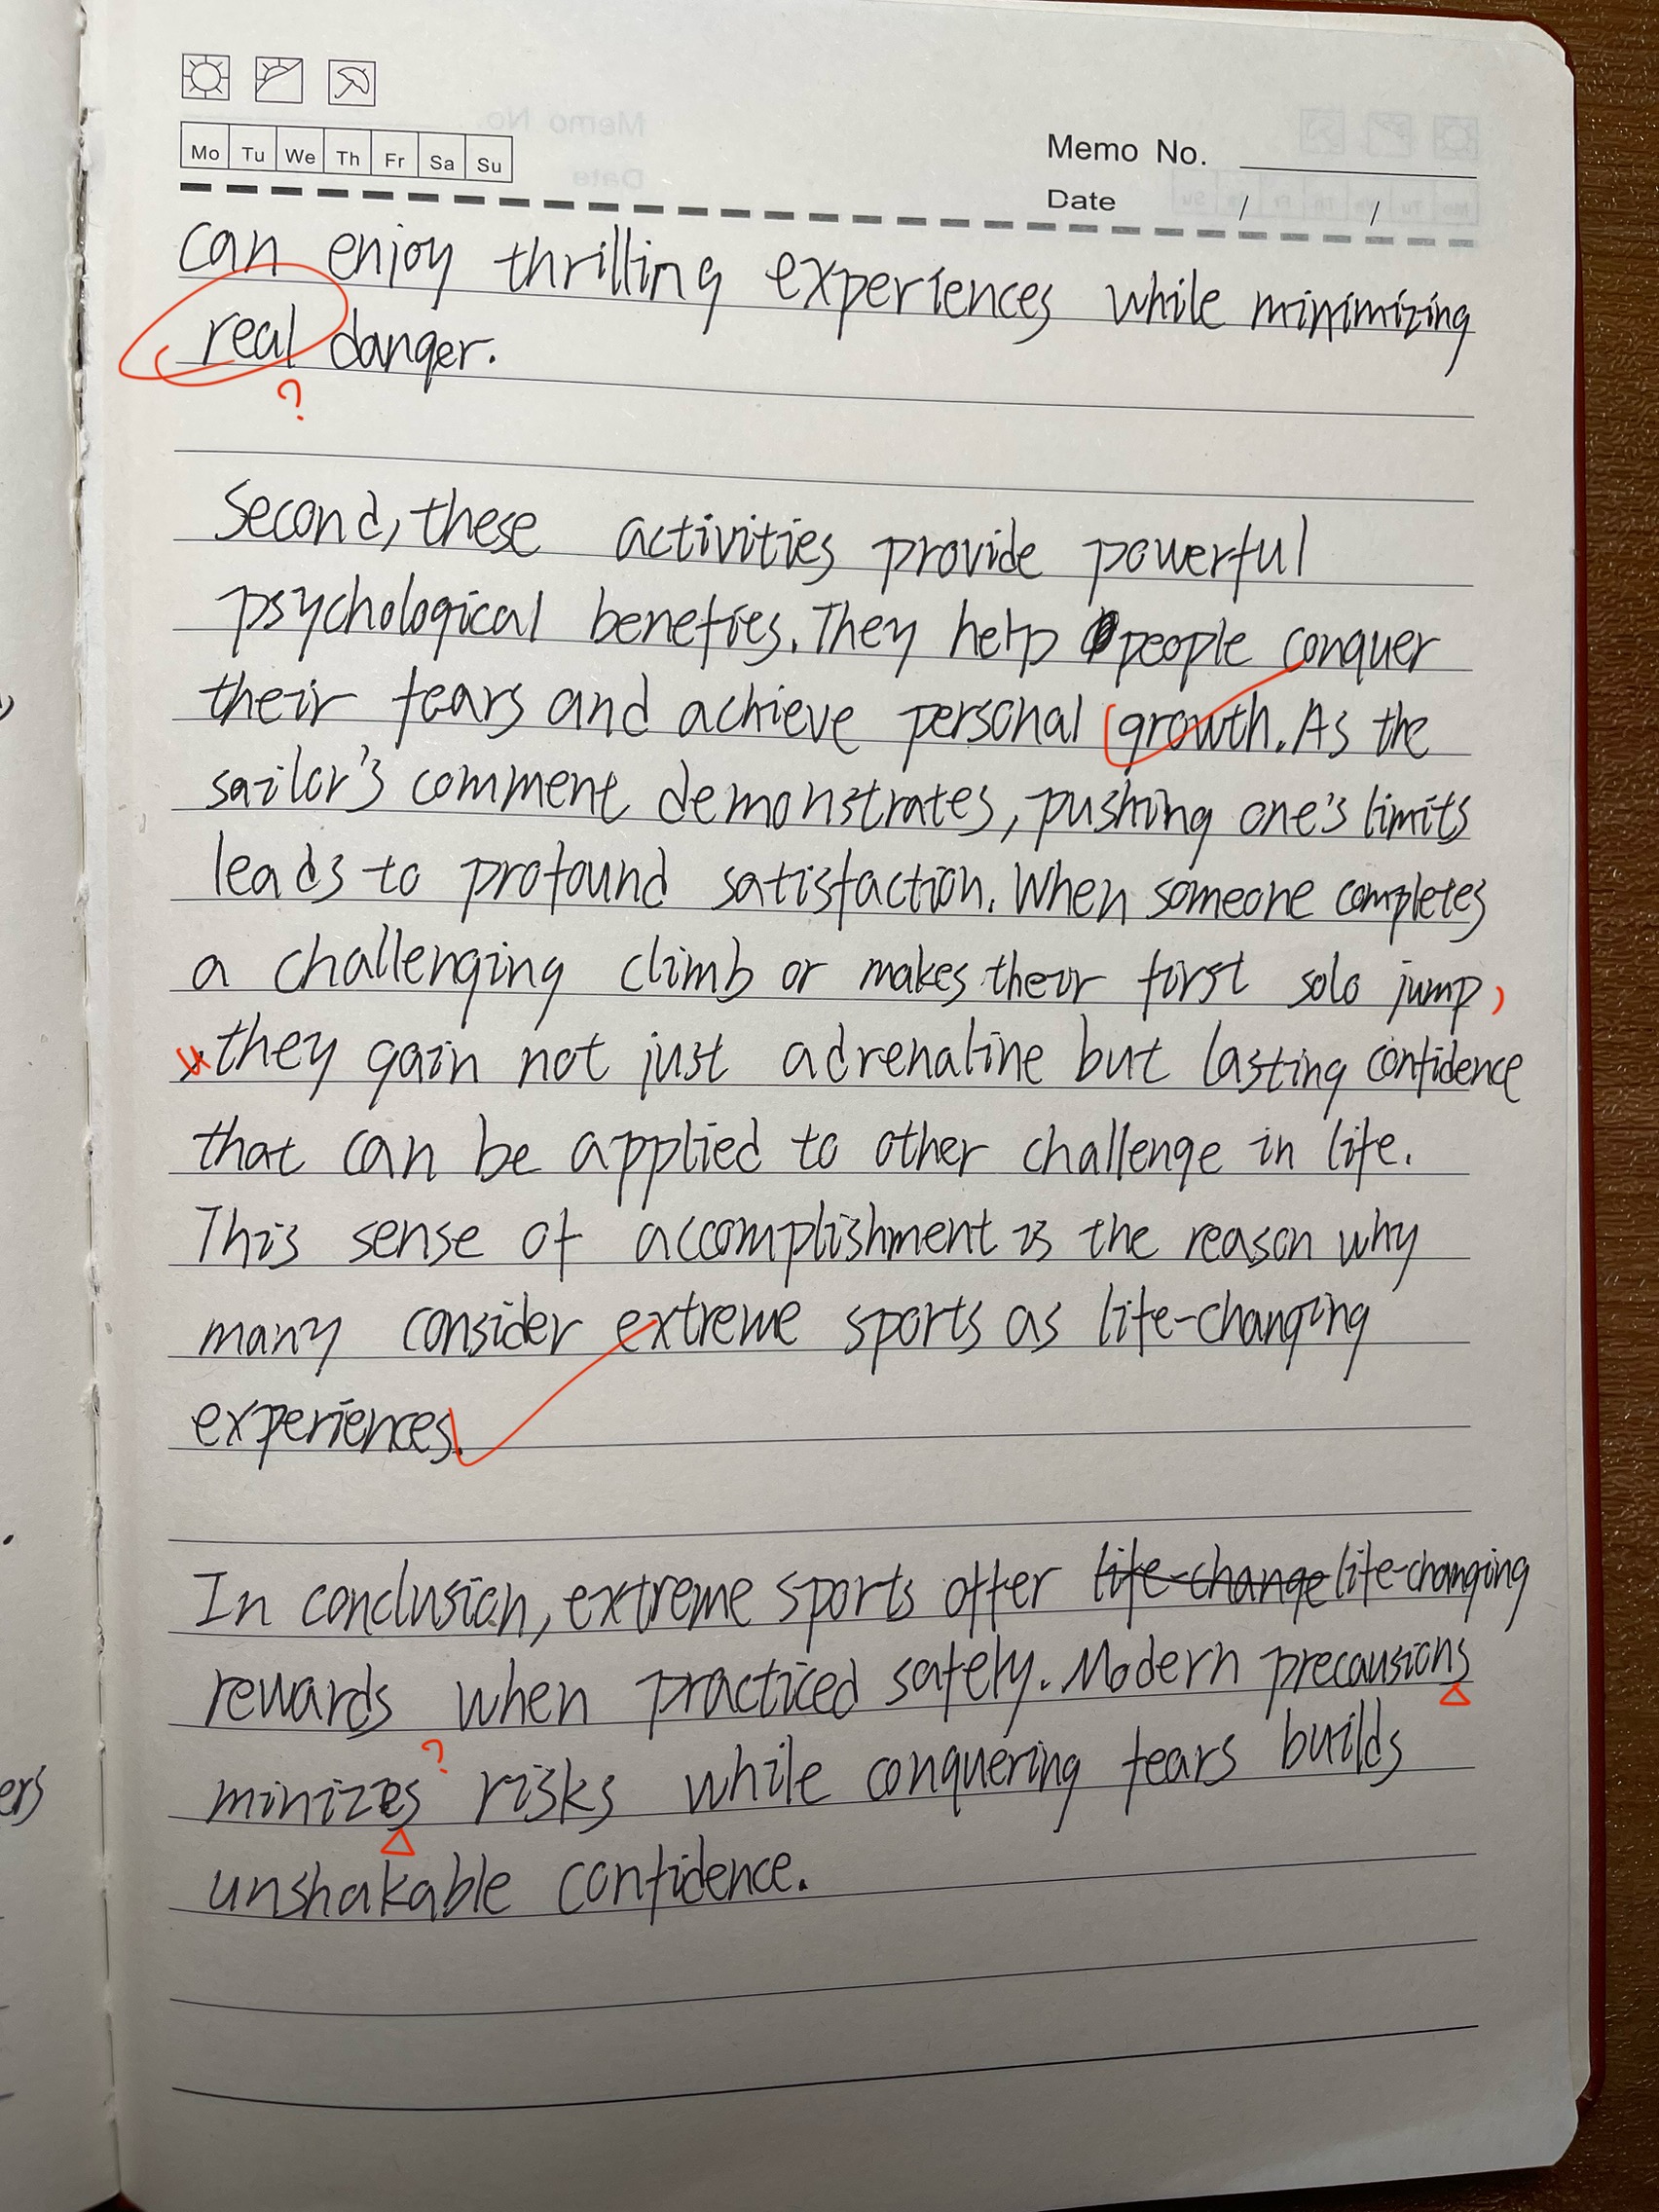 Mo Tu We Th Fr Sa Su
Memo No.
Date / /
can enjoy thrilling experiences while minimizing
real danger.
?
Second, these activities provide powerful
psychological benefies. They help people conquer
their fears and achieve personal growth. As the
sailor's comment demonstrates, pushing one's limits
leads to profound satisfaction. When someone completes
a challenging climb or makes their first solo jump,
they gain not just adrenaline but lasting confidence
that can be applied to other challenge in life.
This sense of accomplishment is the reason why
many consider extreme sports as life-changing
experiences.
In conclusion, extreme sports offer life-change life-changing
rewards when practiced safely. Modern precausions
?
minizes risks while conquering fears builds
unshakable confidence.
ers